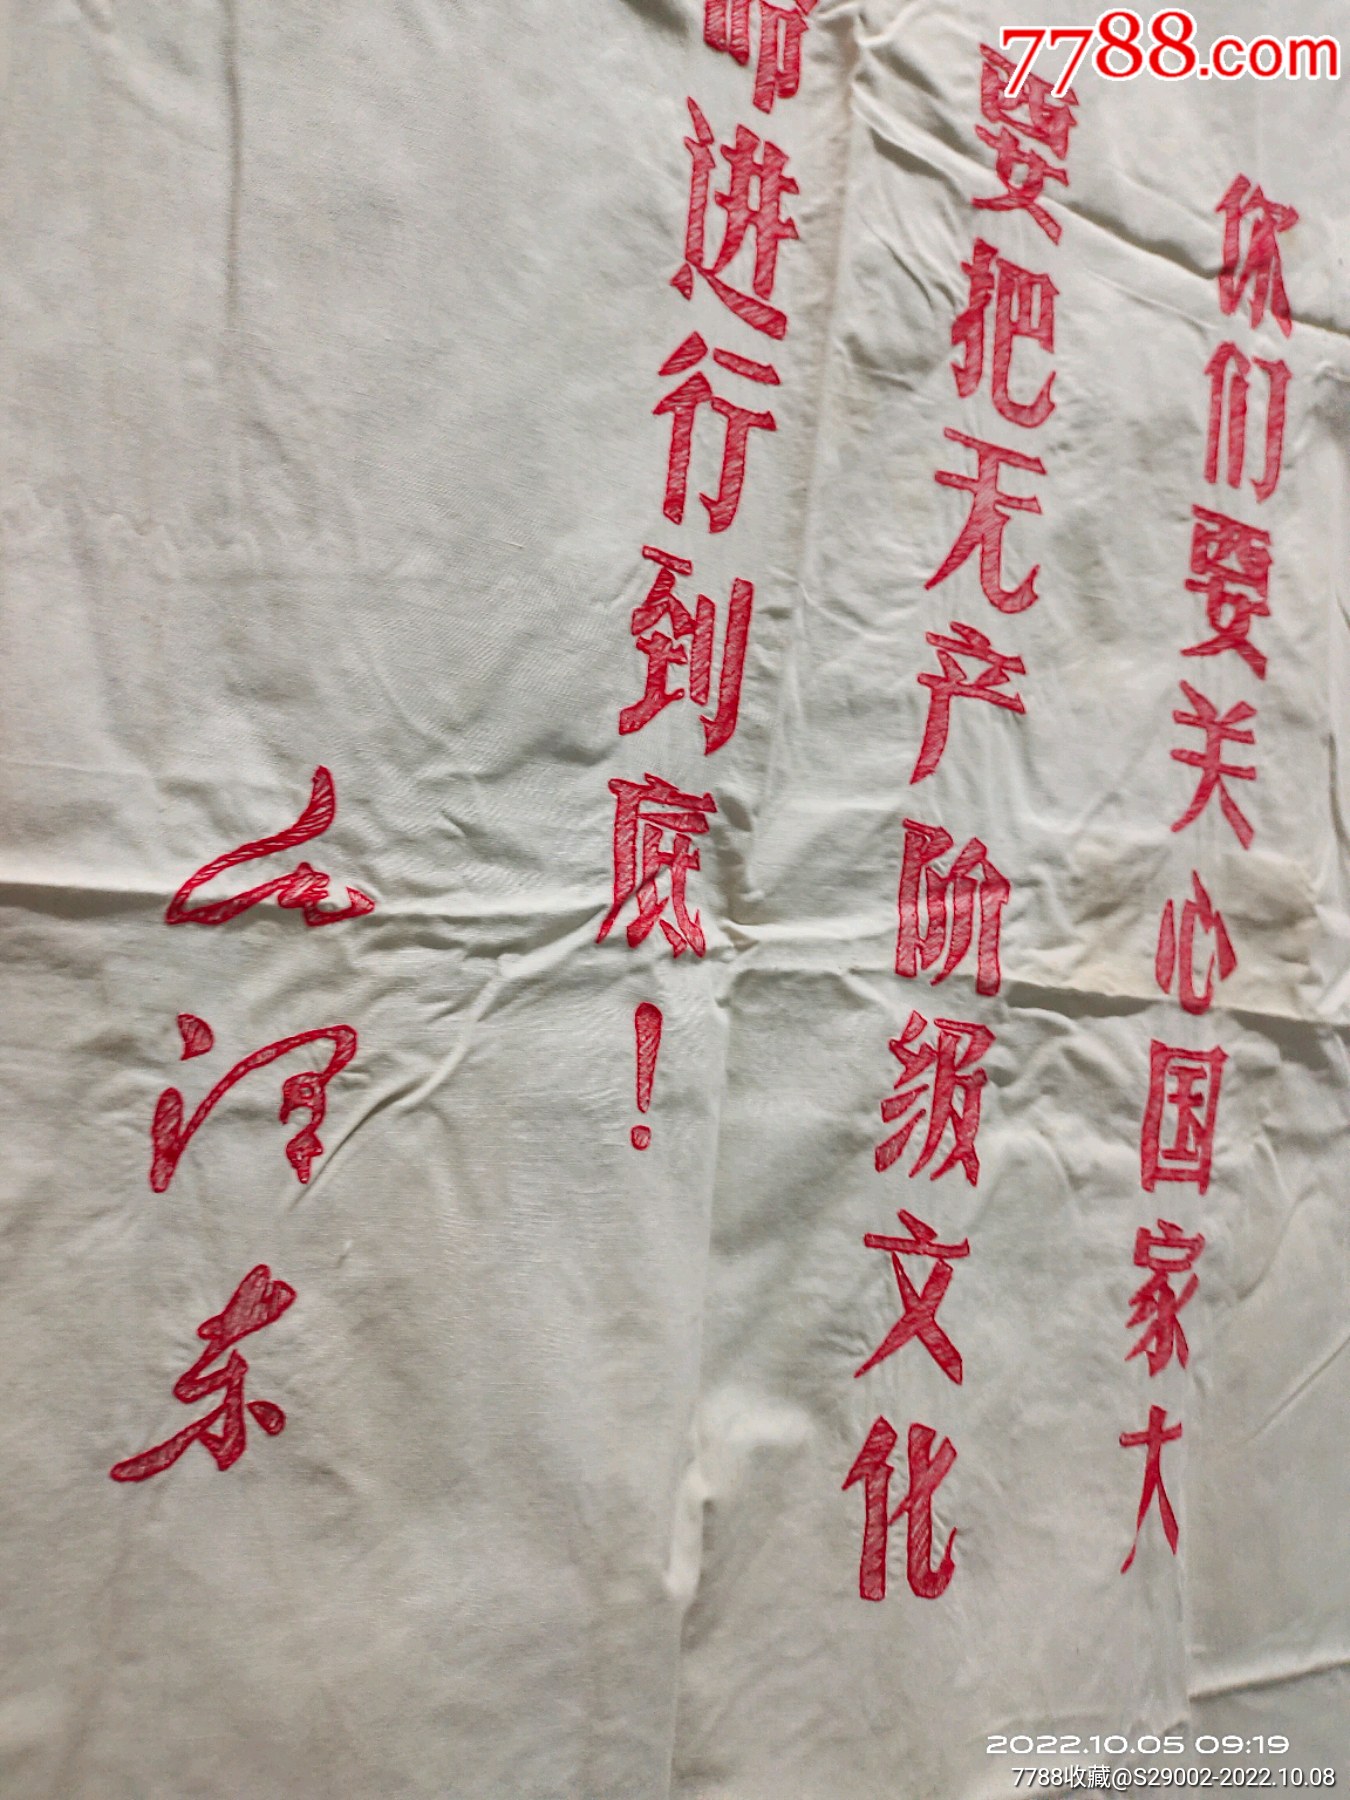 7788.com
你们要关心国家大
要把无产阶级文化
命进行到底！
毛泽东
2022.10.05 09:19
7788收藏@S29002-2022.10.08